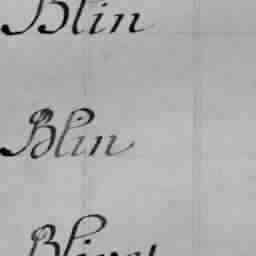 Blin
Blin